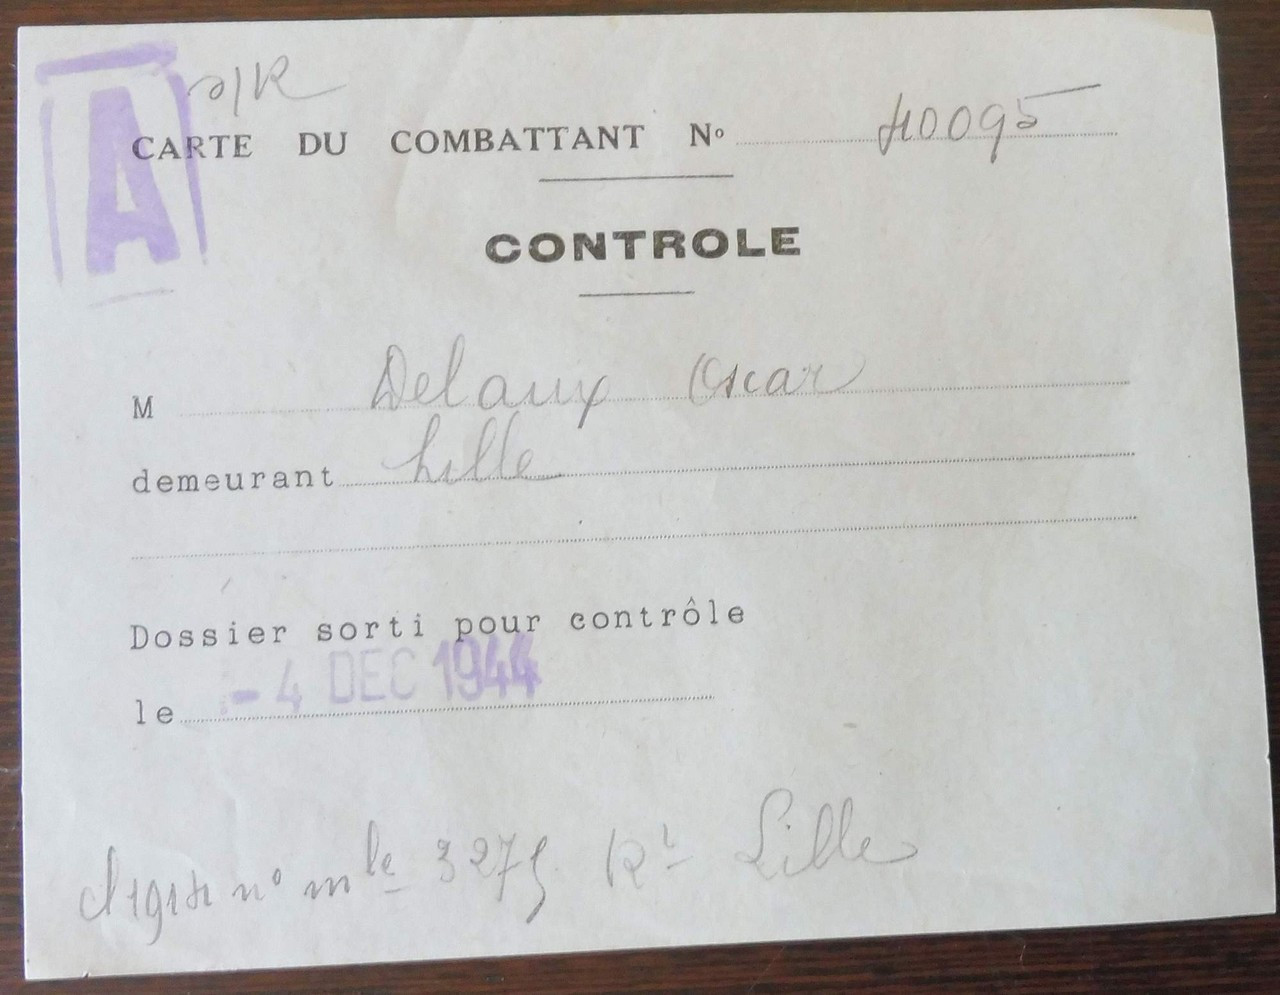 A
CARTE DU COMBATTANT Nº 40095
CONTROLE
M Delaux Oscar
demeurant Lille
Dossier sorti pour contrôle
le - 4 DEC 1944
nº mle 3275 Rt Lille